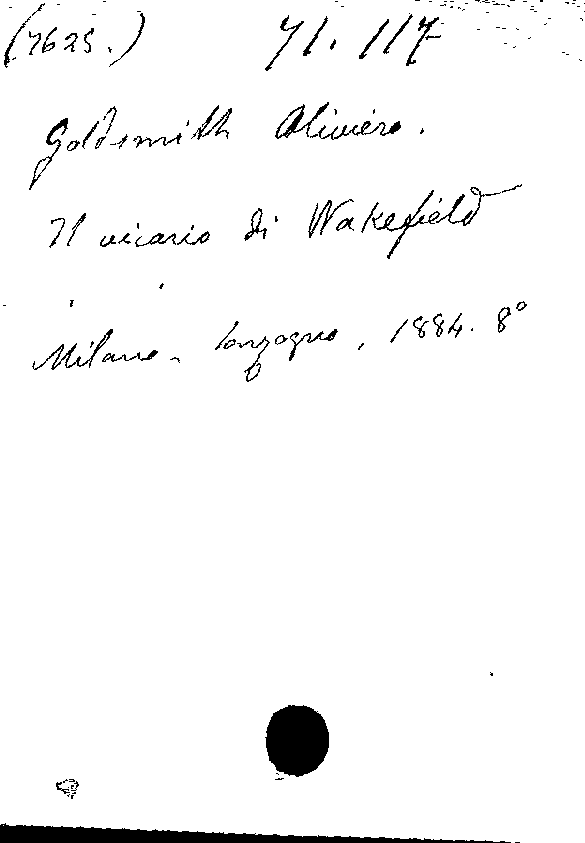 (7625.) 71.117
Goldsmith Oliviero.
Il vicario di Wakefield
Milano - Sonzogno, 1884. 8°